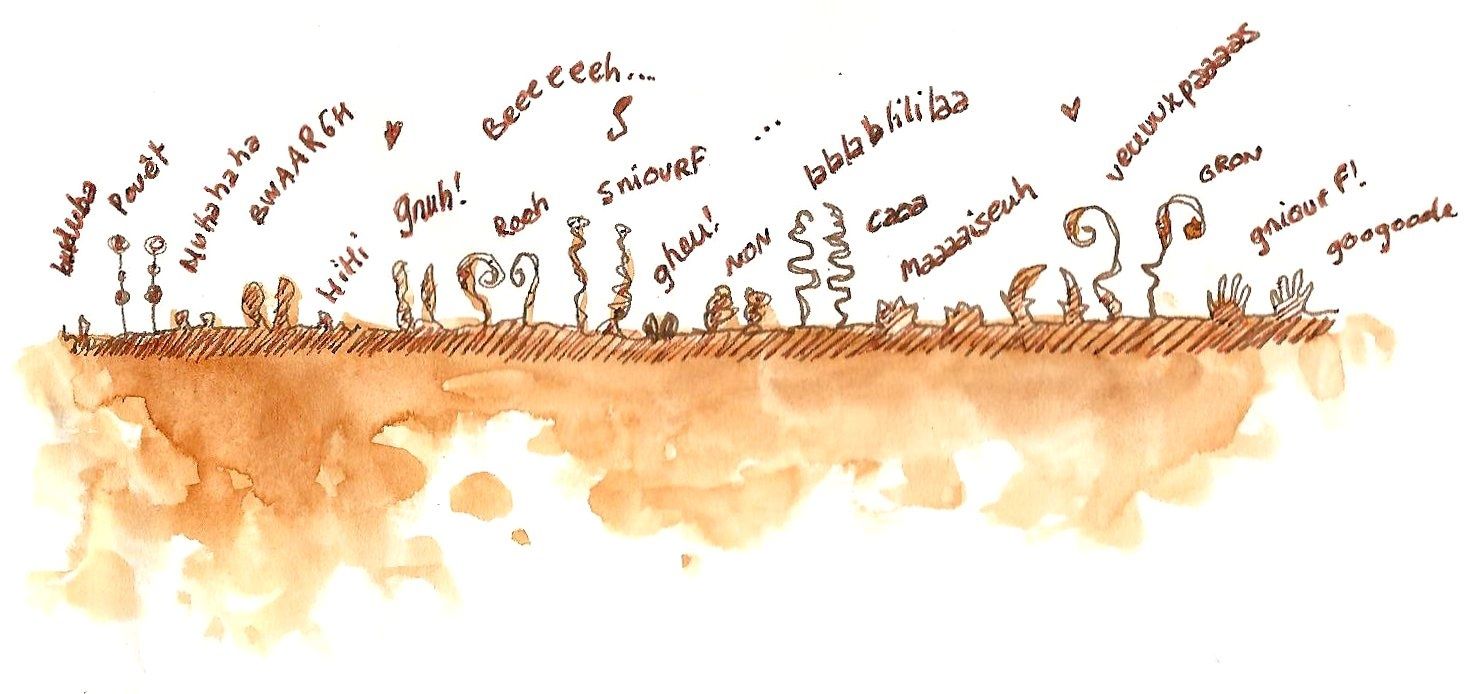 Pouêt
Muhahaha
BWAARGH
HiHi
gnuh!
Beeeeeh...
Roeh
SNIOURF
gheu!
NON
...
lalalablililaa
caaa
Maaaaiseuh
veuuuxpaaaas
GRON
gniourF!